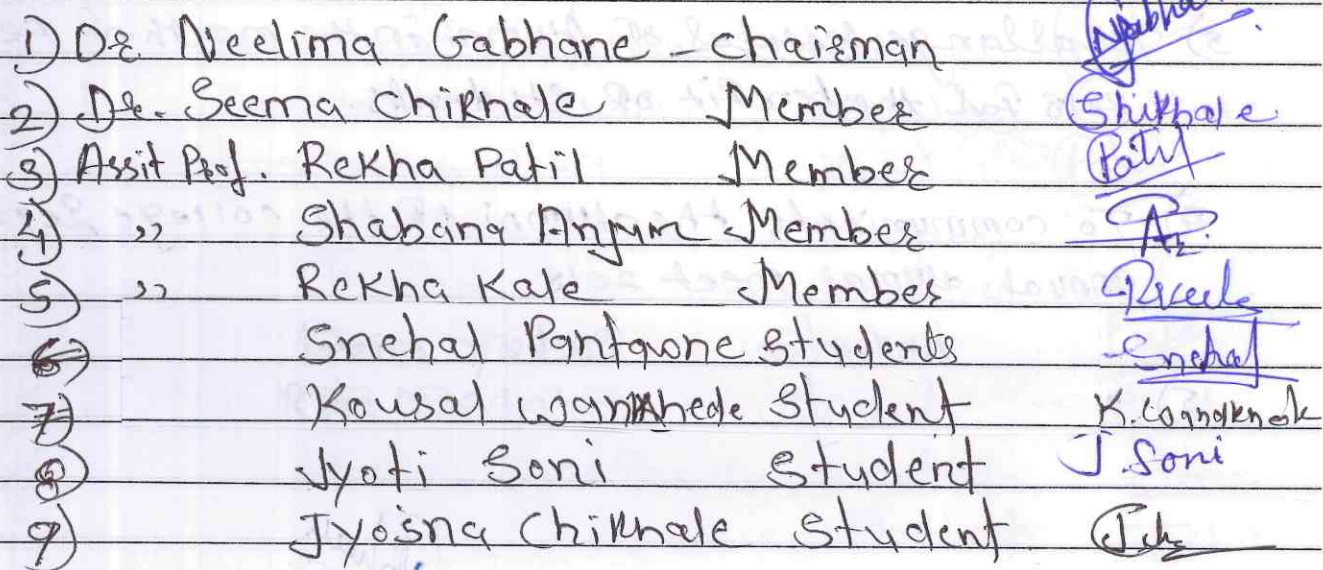 1) Dr. Neelima Gabhane - chairman
2) Dr. Seema Chikhale Member Chikhale
3) Assit Prof. Rekha Patil Member Patil
4) ,, Shabana Anjum Member
5) ,, Rekha Kale Member
6) Snehal Pantawone Students Snehal
7) Kousal Wankhede Student
8) Jyoti Soni Student J. Soni
9) Jyosna Chikhale Student